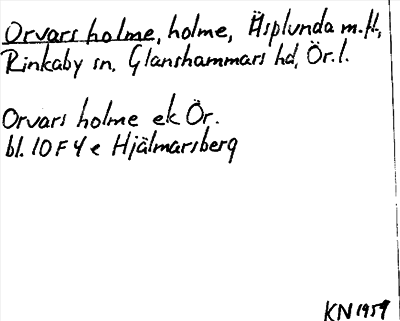 Orvars holme, holme, Äsplunda m.fl.,
Rinkaby sn, Glanshammars hd, Ör.l.
Orvars holme ek Ör.
bl. 10 F 4 e Hjälmarsberg
KN 1959